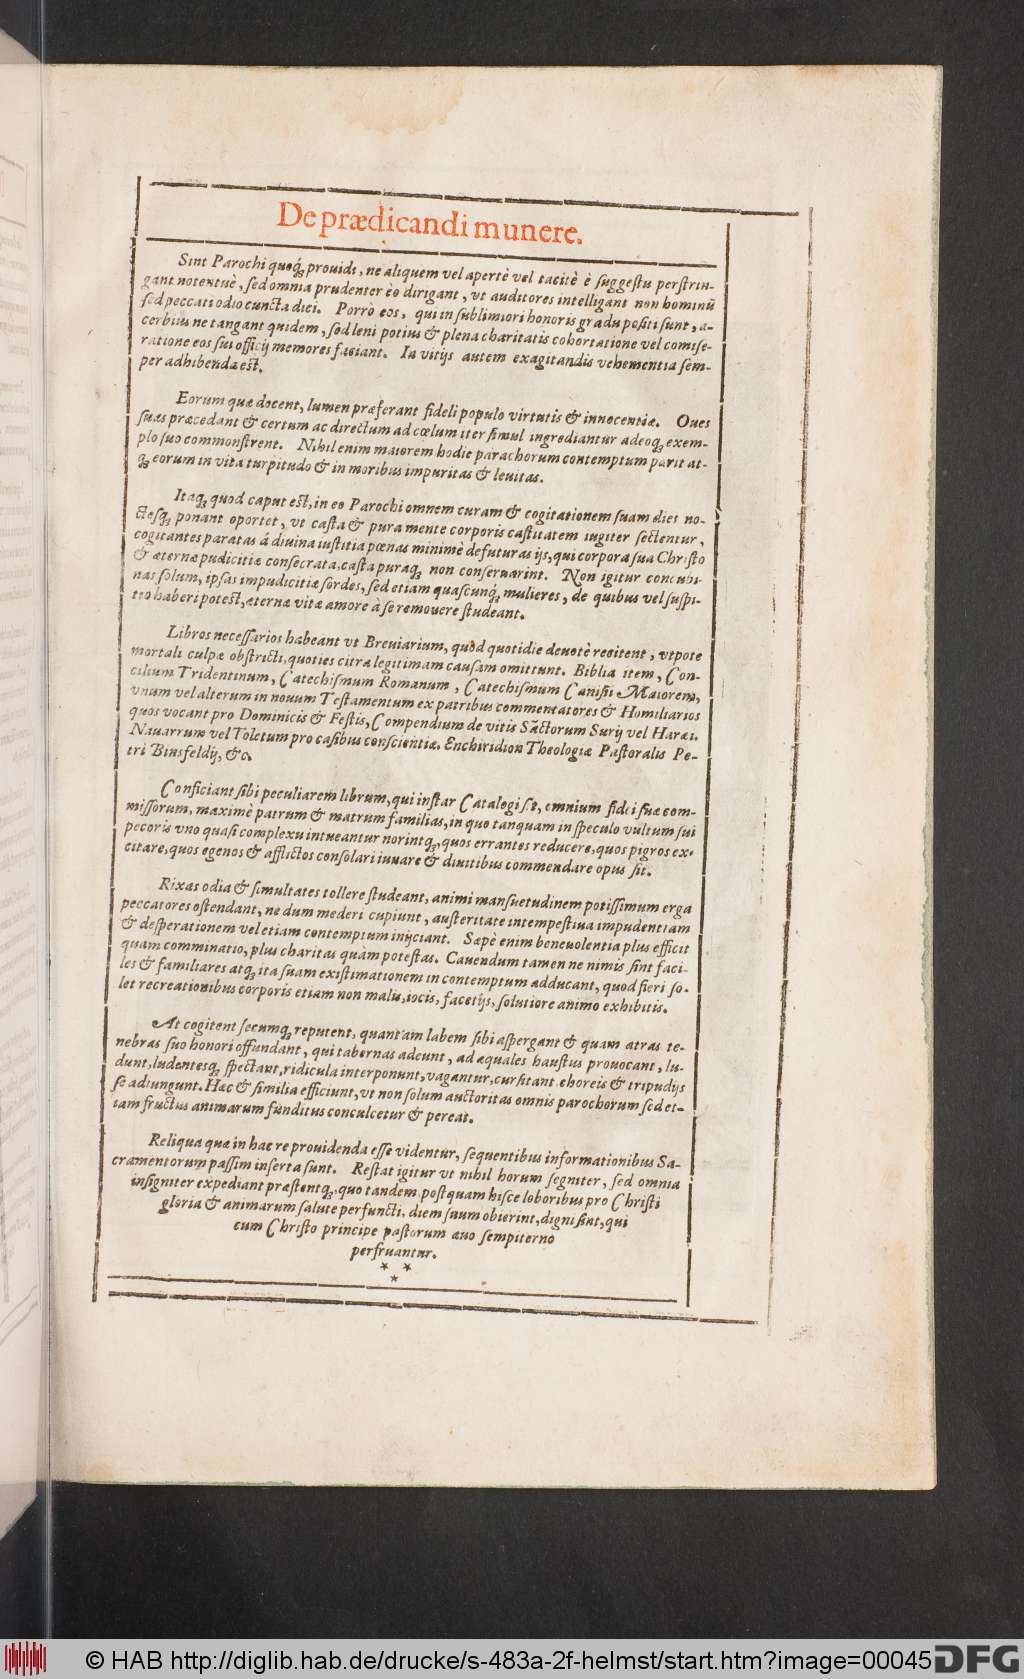 De prædicandi munere.
Sint Parochi quoq; prouidi, ne aliquem vel apertè vel tacitè è suggestu perstrin-
gant notentuè, sed omnia prudenter eò dirigant, vt auditores intelligant non hominũ
sed peccati odio cuncta dici. Porrò eos, qui in sublimiori honoris gradu positi sunt, a-
cerbius ne tangant quidem, sed leni potius & plena charitatis cohortatione vel comise-
ratione eos sui officij memores faciant. In vitijs autem exagitandis vehementia sem-
per adhibenda est.
Eorum quæ docent, lumen præferant fideli populo virtutis & innocentiæ. Oues
suas præcedant & certum ac directum ad cœlum iter simul ingrediantur adeoq; exem-
plo suo commonstrent. Nihil enim maiorem hodie parachorum contemptum parit at-
q; eorum in vita turpitudo & in moribus impuritas & leuitas.
Itaq; quod caput est, in eo Parochi omnem curam & cogitationem suam dies no-
ctesq; ponant oportet, vt casta & pura mente corporis castitatem iugiter sectentur,
cogitantes paratas á diuina iustitia pœnas minimè defuturas ijs, qui corpora sua Christo
& æternæ pudicitiæ consecrata, casta puraq; non conseruarint. Non igitur concubi-
nas solum, ipsas impudicitiæ sordes, sed etiam quascunq; mulieres, de quibus vel suspi-
tio haberi potest, æternæ vitæ amore à se remouere studeant.
Libros necessarios habeant vt Breuiarium, quod quotidie deuotè recitent, vtpote
mortali culpæ obstricti, quoties citra legitimam causam omittunt. Biblia item, Con-
cilium Tridentinum, Catechismum Romanum, Catechismum Canisii Maiorem,
vnum vel alterum in nouum Testamentum ex patribus commentatores & Homiliarios
quos vocant pro Dominicis & Festis, Compendium de vitis Sãctorum Surij vel Haræi.
Nauarrum vel Toletum pro casibus conscientiæ. Enchiridion Theologiæ Pastoralis Pe-
tri Binsfeldij, &c.
Conficiant sibi peculiarem librum, qui instar Catalogi sit, omnium fidei suæ com-
missorum, maximè patrum & matrum familias, in quo tanquam in speculo vultum sui
pecoris vno quasi complexu intueantur norintq; quos errantes reducere, quos pigros ex-
citare, quos egenos & afflictos consolari iuuare & diuitibus commendare opus sit.
Rixas odia & simultates tollere studeant, animi mansuetudinem potissimum erga
peccatores ostendant, ne dum mederi cupiunt, austeritate intempestiua impudentiam
& desperationem vel etiam contemptum inijciant. Sæpè enim beneuolentia plus efficit
quam comminatio, plus charitas quàm potestas. Cauendum tamen ne nimis sint faci-
les & familiares atq; ita suam existimationem in contemptum adducant, quod fieri so-
let recreationibus corporis etiam non malis, iocis, facetijs, solutiore animo exhibitis.
At cogitent secumq; reputent, quantam labem sibi aspergant & quam atras te-
nebras suo honori offundant, qui tabernas adeunt, ad æquales haustus prouocant, lu-
dunt, ludentesq; spectant, ridicula interponunt, vagantur, cursitant, choreis & tripudijs
se adiungunt. Hæc & similia efficiunt, vt non solum auctoritas omnis parochorum sed et-
iam fructus animarum funditus conculcetur & pereat.
Reliqua quæ in hac re prouidenda esse videntur, sequentibus informationibus Sa-
cramentorum passim inserta sunt. Restat igitur vt nihil horum segniter, sed omnia
insigniter expediant præstentq; quo tandem postquam hisce loboribus pro Christi
gloria & animarum salute perfuncti, diem suum obierint, digni sint, qui
cum Christo principe pastorum æuo sempiterno
perfruantur.
© HAB http://diglib.hab.de/drucke/s-483a-2f-helmst/start.htm?image=00045
DFG